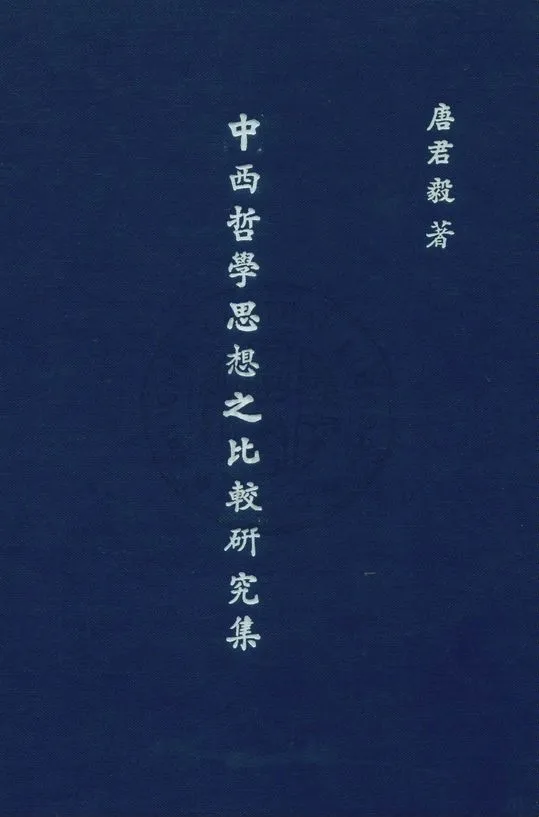 唐君毅 著
中西哲學思想之比較研究集